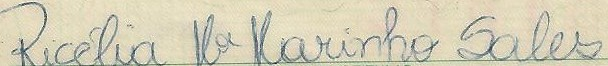 Ricélia Mª Marinho Sales